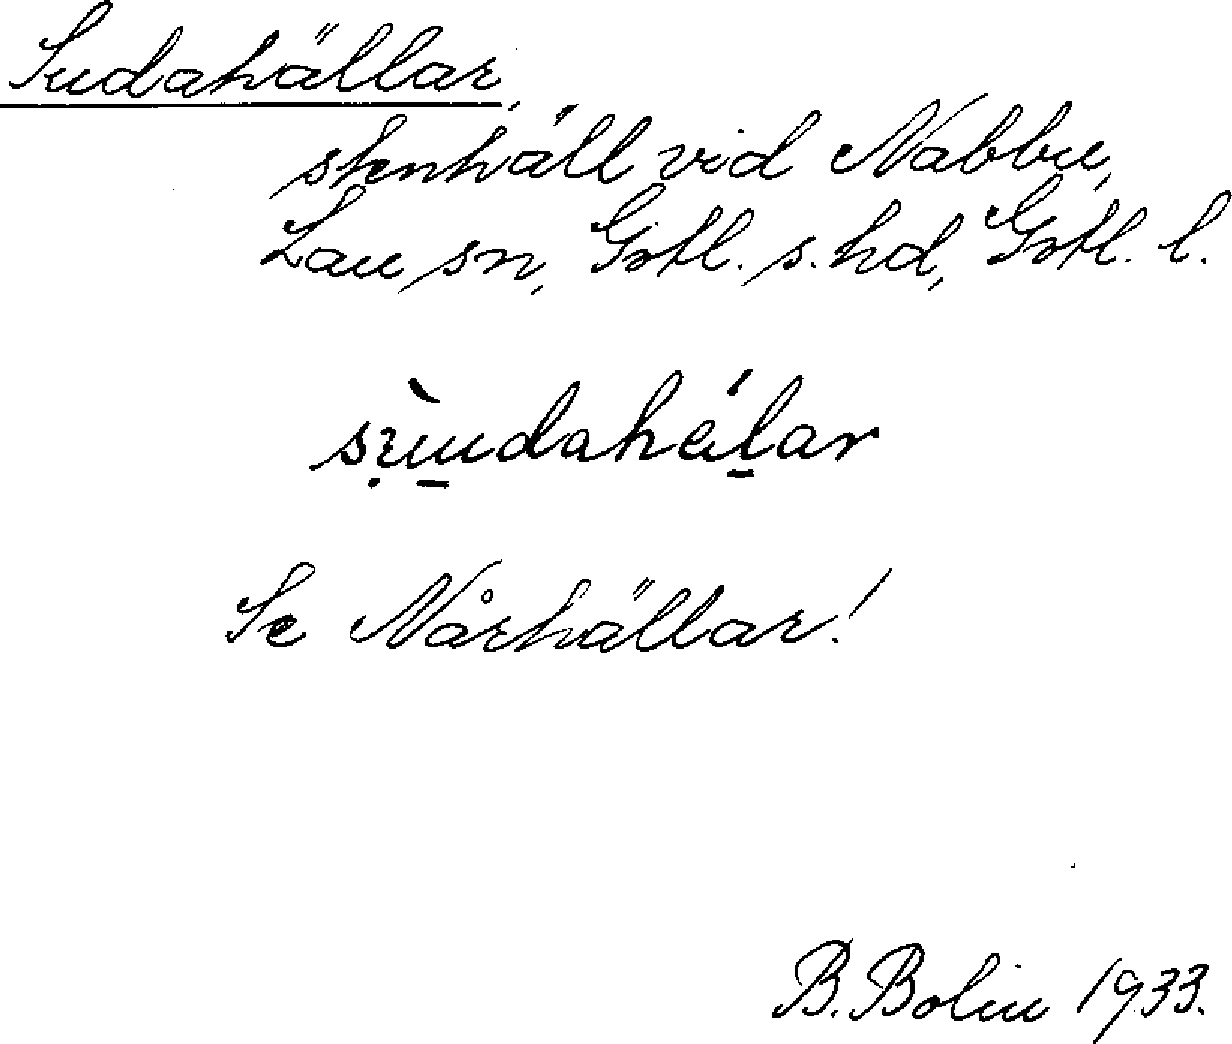 Sudahällar,
stenhäll vid Nabbu,
Lau sn, Gotl. s. hd, Gotl. l.
Se Nårhällar!
B. Bolin 1933.